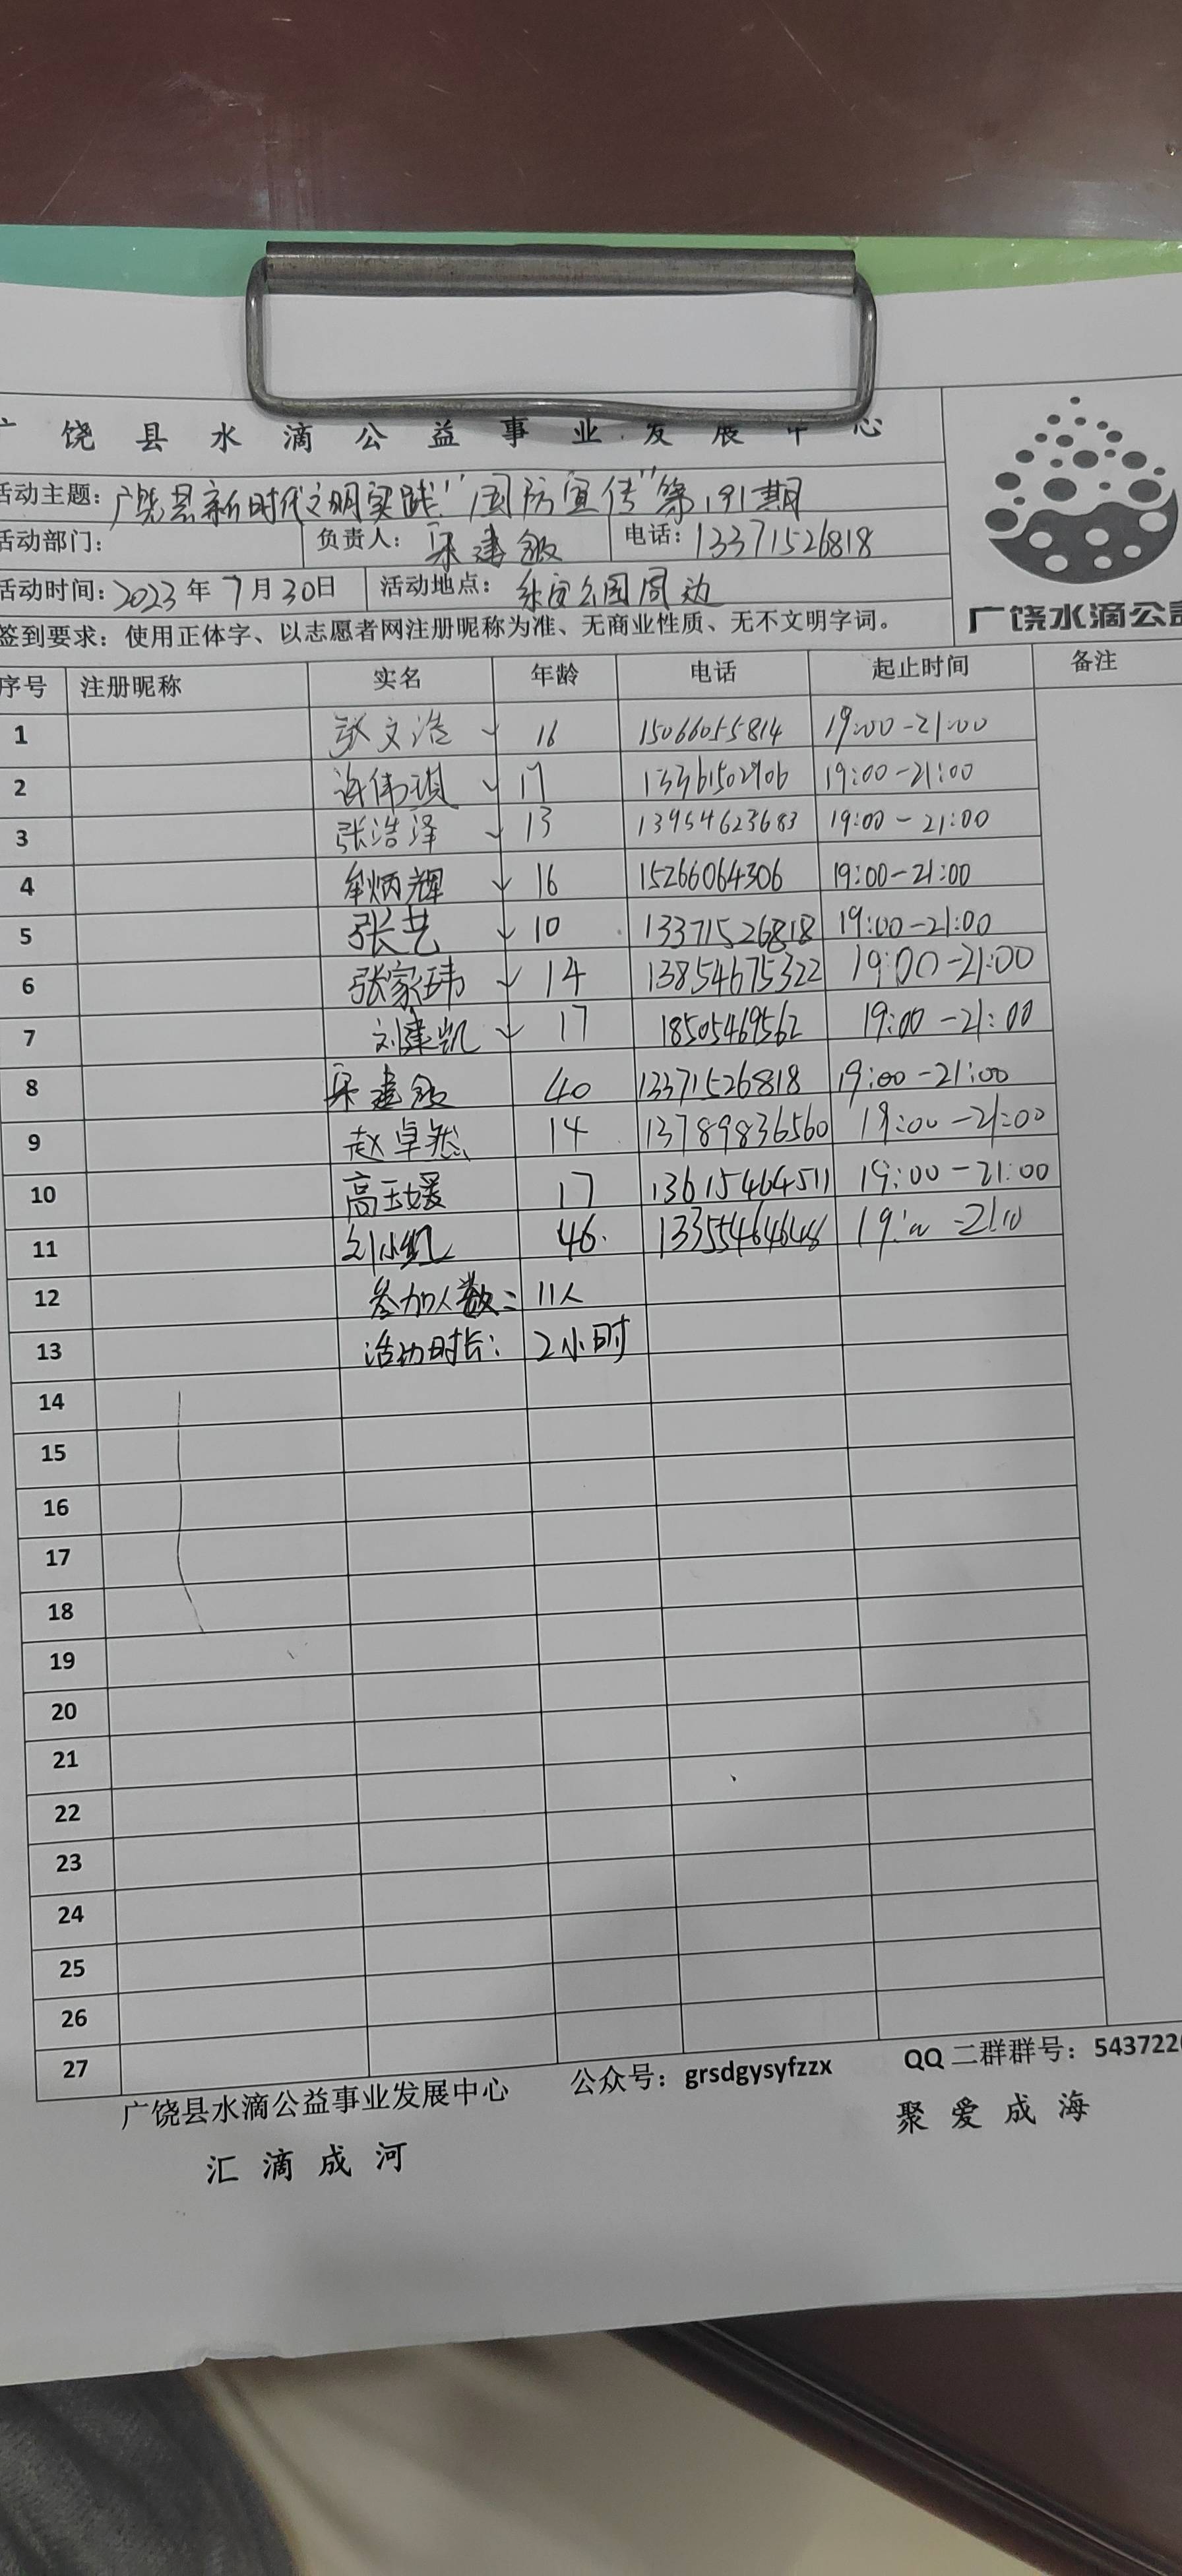 饶县水滴公益事业发展中心
活动主题：广饶县新时代文明实践"国防宣传"第191期
活动部门： 负责人： 建敏 电话：13371526818
活动时间：2023年7月30日 活动地点：乐安公园周边
签到要求：使用正体字、以志愿者网注册昵称为准、无商业性质、无不文明字词。
广饶水滴公益
序号 注册昵称 实名 年龄 电话 起止时间 备注
1 张文浩 16 15066055814 19:00-21:00
2 许伟琪 17 13361502906 19:00-21:00
3 张浩泽 13 13954623683 19:00-21:00
4 牟炳辉 16 15266064306 19:00-21:00
5 张艺 10 13371526818 19:00-21:00
6 张家玮 14 13854675322 19:00-21:00
7 刘建凯 17 18505469562 19:00-21:00
8 建敏 40 13371526818 19:00-21:00
9 赵卓然 14 13789836560 19:00-21:00
10 高玉媛 17 13615464511 19:00-21:00
11 刘小 46.
12 参加人数：11人
13 活动时长：2小时
14
15
16
17
18
19
20
21
22
23
24
25
26
27
广饶县水滴公益事业发展中心 公众号：grsdgysyfzzx QQ二群群号：543722
汇滴成河 聚爱成海